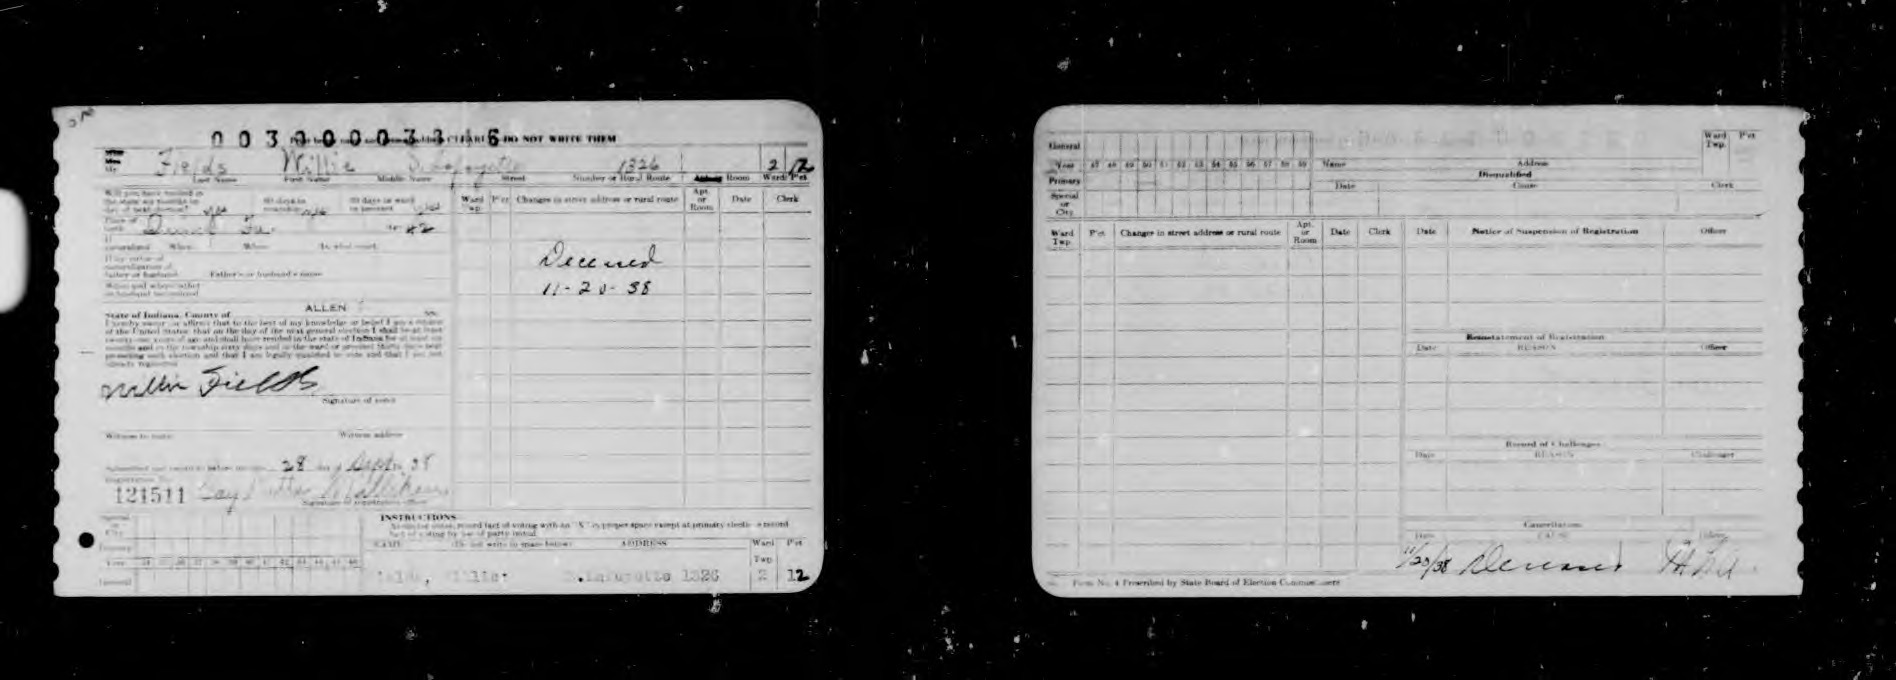 0 0 3 0 0 0 0 3 3 1 6
CLEARLY DO NOT WRITE THEM
Fields Willie S. Lafayette 1326 2 12
Last Name First Name Middle Name Street Number or Rural Route Room Ward Pct
Will you have resided in
the state six months by
day of next election? yes
60 days in
township yes
30 days in ward
or precinct yes
Place of
birth
If
naturalized When Where In what court
If by virtue of
naturalization of
father or husband
Father's or husband's name
When and where father
or husband naturalized
State of Indiana, County of ALLEN SS.
I hereby swear or affirm that to the best of my knowledge or belief I am a citizen
of the United States; that on the day of the next general election I shall be at least
twenty-one years of age and shall have resided in the state of Indiana for at least six
months and in the township sixty days and in the ward or precinct thirty days next
preceding such election and that I am legally qualified to vote and that I am not
already registered.
Willie Fields
Signature of voter
Witness to mark
Witness address
Subscribed and sworn to before me this 28 day of Sept. 38
Registration No.
121511
Signature of registration officer
Ward
Twp.
P'ct
Changes in street address or rural route
Apt.
or
Room
Date
Clerk
Deceased
11-20-38
INSTRUCTIONS
NAME (Do not write in space below) ADDRESS Ward Twp. P'ct
Fields, Willie S.Lafayette 1326 2 12
Special
or
City
Primary
Year
General
General
Year 47 48 49 50 51 52 53 54 55 56 57 58 59
Primary
Special
or
City
Name Address
Ward
Twp.
P'ct
Disqualified
Date Cause Clerk
Ward
Twp.
P'ct
Changes in street address or rural route
Apt.
or
Room
Date
Clerk
Date Notice of Suspension of Registration Officer
Reinstatement of Registration
Date REASON Officer
Record of Challenges
Date REASON Challenger
Cancellation
Date CAUSE Officer
11/20/38 Deceased
Form No. 4 Prescribed by State Board of Election Commissioners